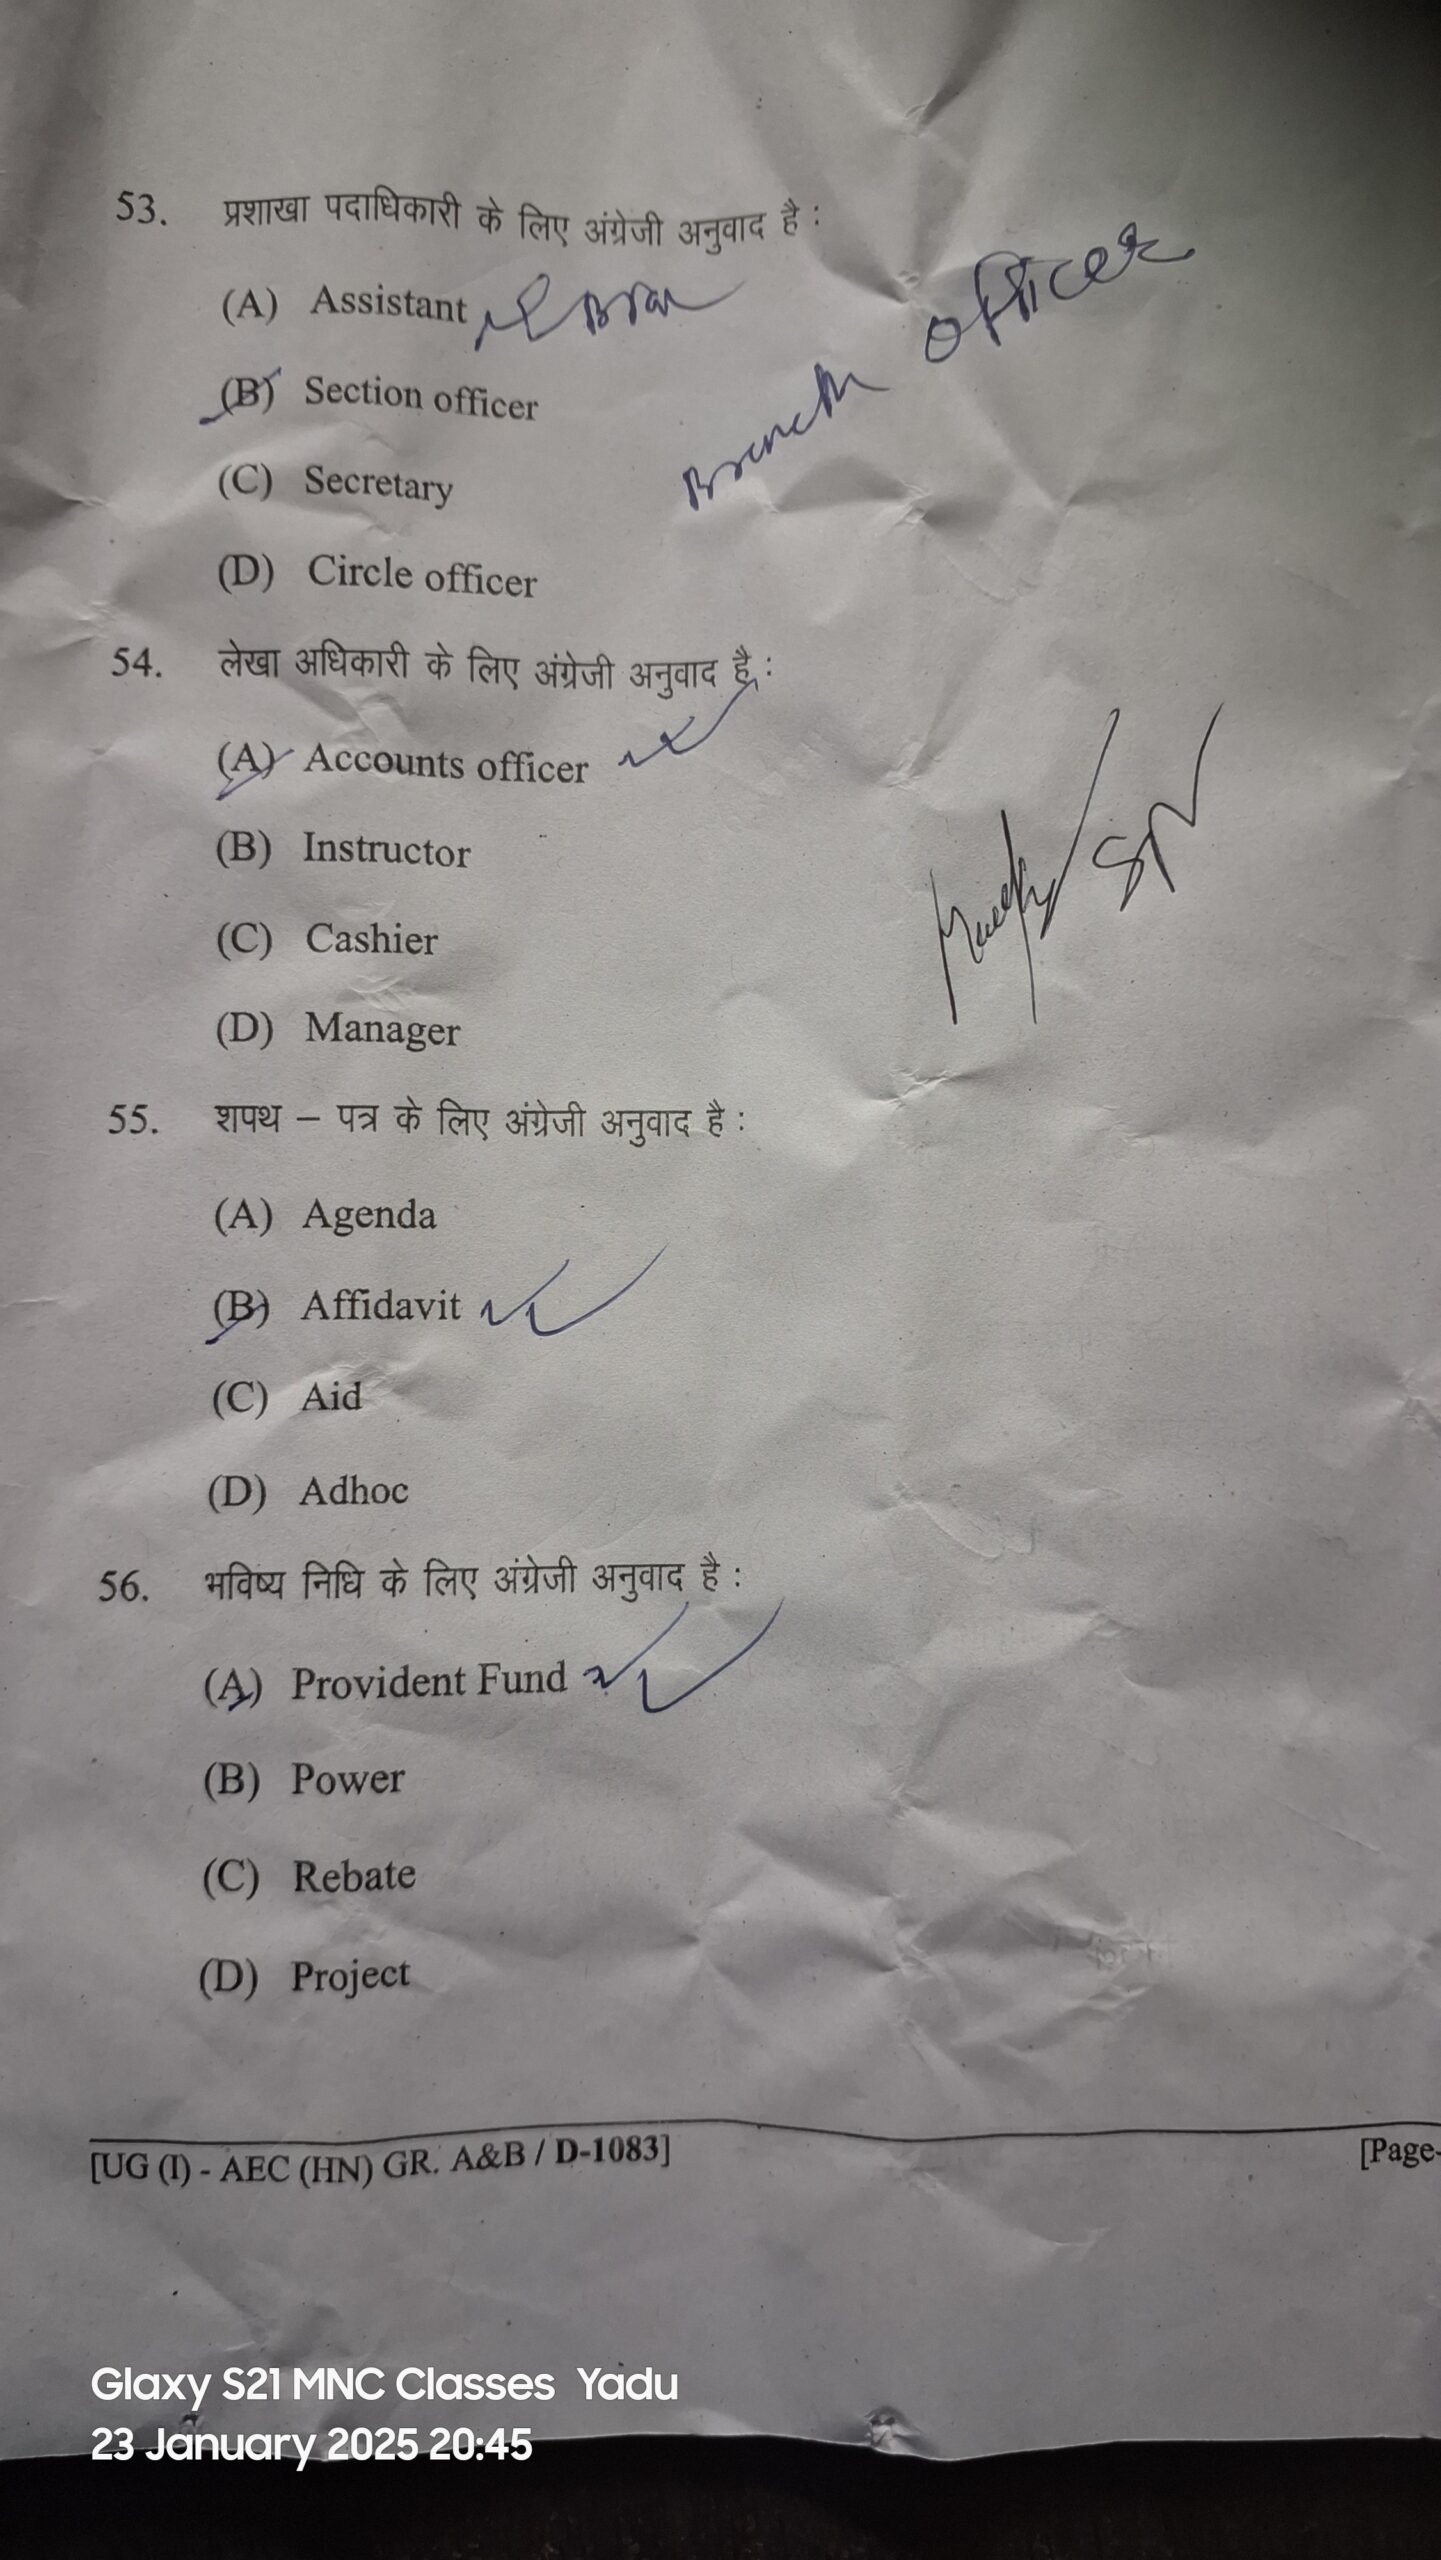 53. प्रशाखा पदाधिकारी के लिए अंग्रेजी अनुवाद है :
(A) Assistant
(B) Section officer
Branch officer
(C) Secretary
(D) Circle officer
54. लेखा अधिकारी के लिए अंग्रेजी अनुवाद है :
(A) Accounts officer
(B) Instructor
(C) Cashier
(D) Manager
55. शपथ – पत्र के लिए अंग्रेजी अनुवाद है :
(A) Agenda
(B) Affidavit
(C) Aid
(D) Adhoc
56. भविष्य निधि के लिए अंग्रेजी अनुवाद है :
(A) Provident Fund
(B) Power
(C) Rebate
(D) Project
[UG (I) - AEC (HN) GR. A&B / D-1083] [Page-
Glaxy S21 MNC Classes Yadu
23 January 2025 20:45